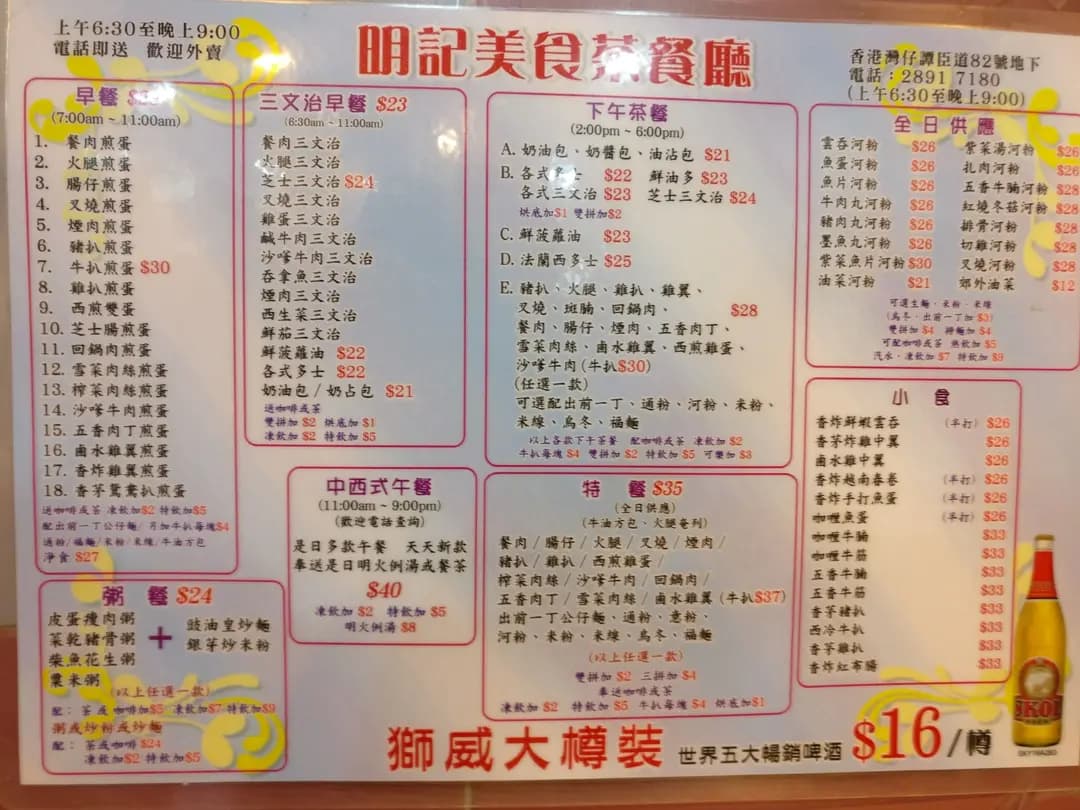 上午6:30至晚上9:00
電話即送 歡迎外賣
明記美食茶餐廳
香港灣仔譚臣道82號地下
電話：2891 7180
(上午6:30至晚上9:00)
早餐
(7:00am ~ 11:00am)
1. 餐肉煎蛋
2. 火腿煎蛋
3. 腸仔煎蛋
4. 叉燒煎蛋
5. 煙肉煎蛋
6. 豬扒煎蛋
7. 牛扒煎蛋 $30
8. 雞扒煎蛋
9. 西煎雙蛋
10. 芝士腸煎蛋
11. 回鍋肉煎蛋
12. 雪菜肉絲煎蛋
13. 榨菜肉絲煎蛋
14. 沙嗲牛肉煎蛋
15. 五香肉丁煎蛋
16. 鹵水雞翼煎蛋
17. 香炸雞翼煎蛋
18. 香茅鴛鴦扒煎蛋
送咖啡或茶 凍飲加$2 特飲加$5
配出前一丁公仔麵/另加牛扒每塊$4
通粉/福麵/米粉/米線/牛油方包
淨食 $27
粥 餐 $24
皮蛋瘦肉粥
菜乾豬骨粥
柴魚花生粥
粟米粥
+
豉油皇炒麵
銀芽炒米粉
(以上任選一款)
配： 茶或咖啡加$5 凍飲加$7 特飲加$9
粥或炒粉或炒麵
配： 茶或咖啡 $24
凍飲加$2 特飲加$5
三文治早餐 $23
(6:30am ~ 11:00am)
餐肉三文治
火腿三文治
芝士三文治 $24
叉燒三文治
雞蛋三文治
鹹牛肉三文治
沙嗲牛肉三文治
吞拿魚三文治
煙肉三文治
西生菜三文治
鮮茄三文治
鮮菠蘿油 $22
各式多士 $22
奶油包 / 奶占包 $21
送咖啡或茶
雙拼加 $2 烘底加 $1
凍飲加 $2 特飲加 $5
中西式午餐
(11:00am ~ 9:00pm)
(歡迎電話查詢)
是日多款午餐 天天新款
奉送是日明火例湯或餐茶
$40
凍飲加 $2 特飲加 $5
明火例湯 $8
下午茶餐
(2:00pm ~ 6:00pm)
A. 奶油包、奶醬包、油沾包 $21
B. 各式多士 $22 鮮油多 $23
各式三文治 $23 芝士三文治 $24
烘底加$1 雙拼加$2
C. 鮮菠蘿油 $23
D. 法蘭西多士 $25
E. 豬扒、火腿、雞扒、雞翼、
叉燒、斑腩、回鍋肉、 $28
餐肉、腸仔、煙肉、五香肉丁、
雪菜肉絲、鹵水雞翼、西煎雞蛋、
沙嗲牛肉 (牛扒$30)
(任選一款)
可選配出前一丁、通粉、河粉、米粉、
米線、烏冬、福麵
以上各款下午茶餐 配咖啡或茶 凍飲加 $2
牛扒每塊 $4 雙拼加 $2 特飲加 $5 可樂加 $3
特 餐 $35
(全日供應)
(牛油方包、火腿奄列)
餐肉 / 腸仔 / 火腿 / 叉燒 / 煙肉 /
豬扒 / 雞扒 / 西煎雞蛋 /
榨菜肉絲 / 沙嗲牛肉 / 回鍋肉 /
五香肉丁 / 雪菜肉絲 / 鹵水雞翼 (牛扒$37)
出前一丁公仔麵、通粉、意粉、
河粉、米粉、米線、烏冬、福麵
(以上任選一款)
雙拼加 $2 三拼加 $4
奉送咖啡或茶
凍飲加 $2 特飲加 $5 牛扒每塊 $4 烘底加$1
全日供應
雲吞河粉 $26 紫菜湯河粉 $26
魚蛋河粉 $26 扎肉河粉 $26
魚片河粉 $26 五香牛腩河粉 $28
牛肉丸河粉 $26 紅燒冬菇河粉 $28
豬肉丸河粉 $26 排骨河粉 $28
墨魚丸河粉 $26 切雞河粉 $28
紫菜魚片河粉 $30 叉燒河粉 $28
油菜河粉 $21 郊外油菜 $12
可選生麵、米粉、米線
(烏冬、出前一丁加 $3)
雙拼加 $4 撈麵加 $4
可配咖啡或茶 熱飲加 $5
汽水、凍飲加 $7 特飲加 $9
小 食
香炸鮮蝦雲吞 (半打) $26
香茅炸雞中翼 $26
鹵水雞中翼 $26
香炸越南春卷 (半打) $26
香炸手打魚蛋 (半打) $26
咖喱魚蛋 (半打) $26
咖喱牛腩 $33
咖喱牛筋 $33
五香牛腩 $33
五香牛筋 $33
香茅豬扒 $33
西冷牛扒 $33
香茅雞扒 $33
香炸紅布腸 $33
獅威大樽裝 世界五大暢銷啤酒 $16/樽
SKOL